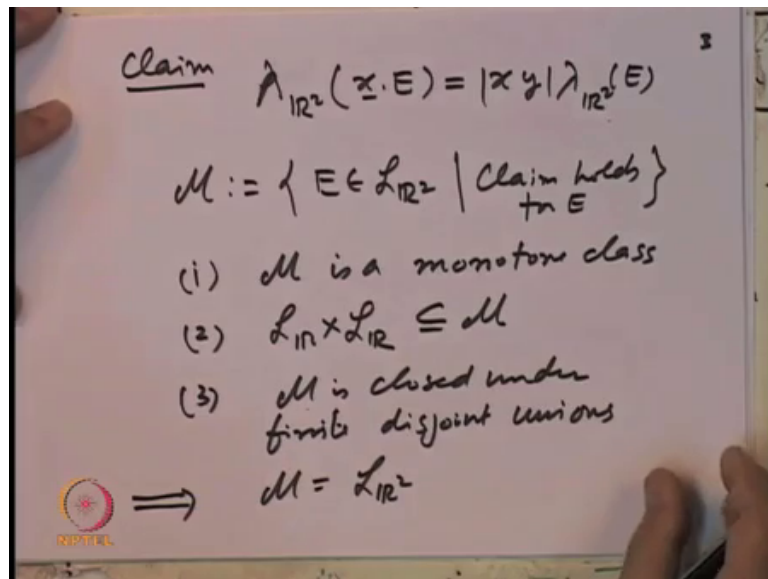 3
Claim λ_ℝ²(x̲.E) = |xy|λ_ℝ²(E)
ℳ := { E ∈ ℒ_ℝ² | Claim holds
for E }
(1) ℳ is a monotone class
(2) ℒ_ℝ × ℒ_ℝ ⊆ ℳ
(3) ℳ is closed under
finite disjoint unions
⟹ ℳ = ℒ_ℝ²
NPTEL